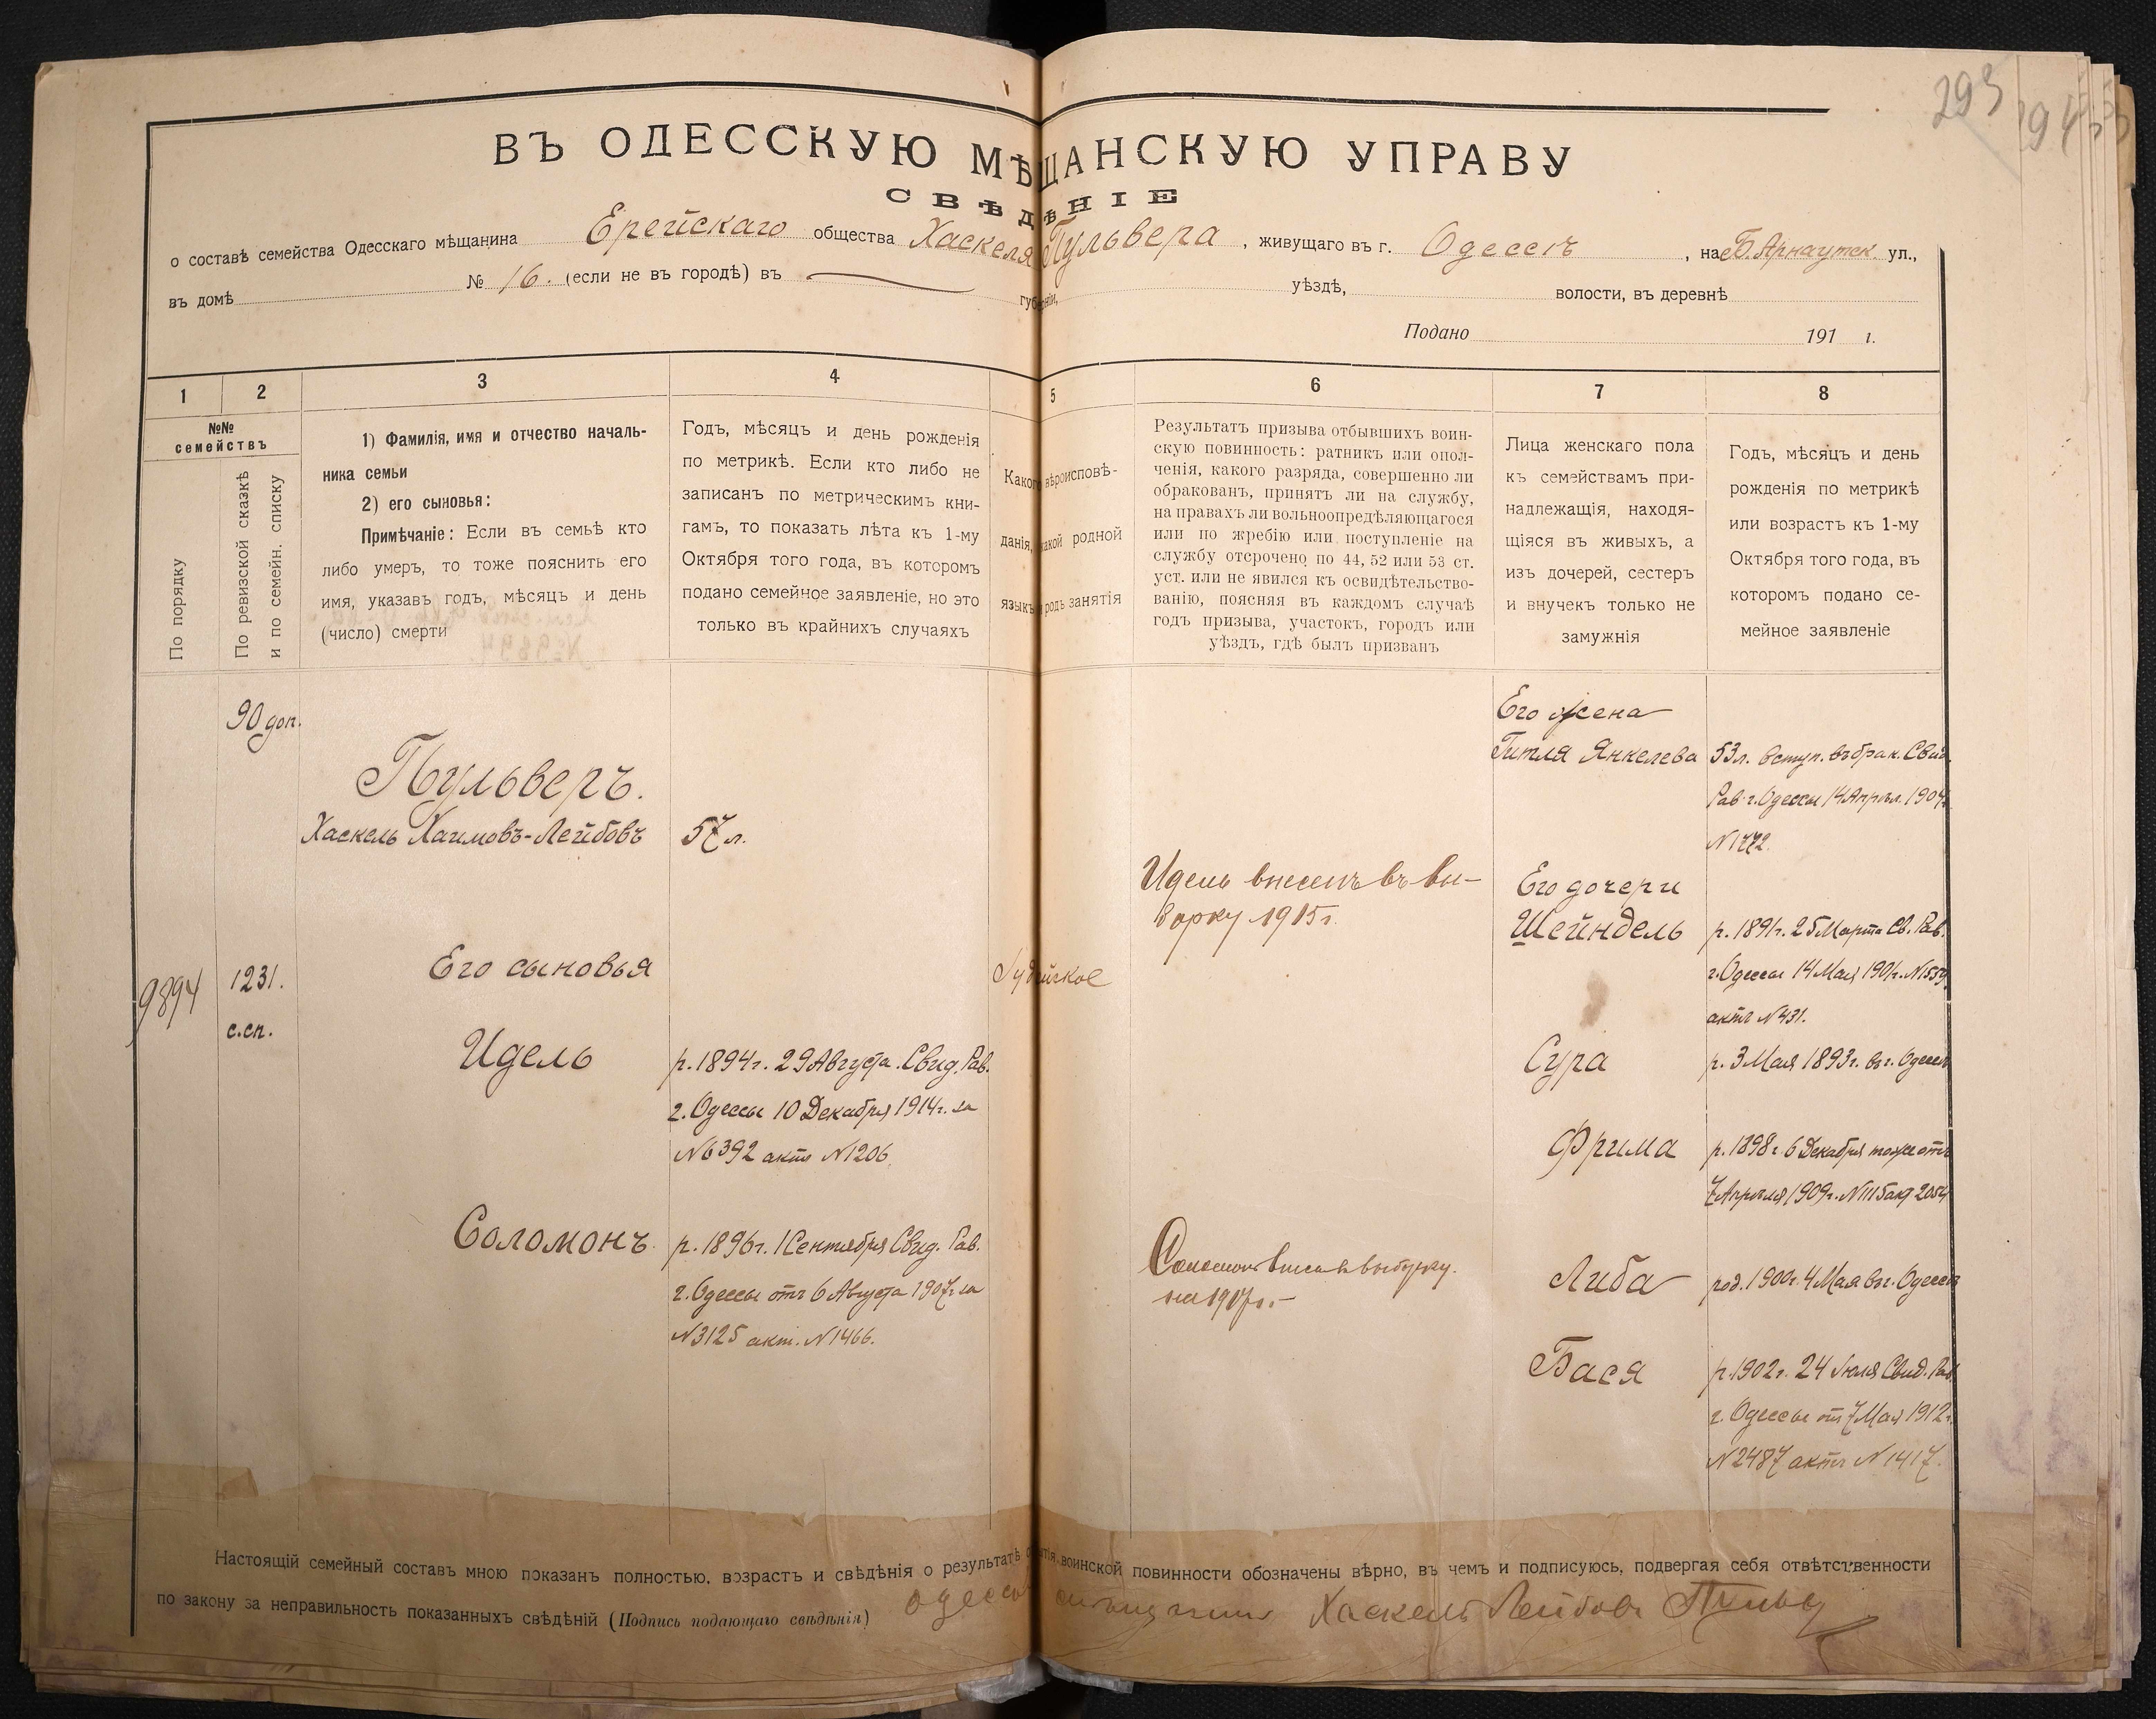 293
94
ВЪ ОДЕССКУЮ МѢЩАНСКУЮ УПРАВУ
СВѢДѢНІЕ
о составѣ семейства Одесскаго мѣщанина Ерейскаго общества Хаскеля Пульвера, живущаго въ г. Одессѣ, на Б. Арнаутск. ул.,
въ домѣ № 16. (если не въ городѣ) въ губерніи, уѣздѣ, волости, въ деревнѣ
Подано 191 г.
1
2
3
4
5
6
7
8
№№
семействъ
По порядку
По ревизской сказкѣ
и по семейн. списку
1) Фамилія, имя и отчество началь-
ника семьи
2) его сыновья:
Примѣчаніе: Если въ семьѣ кто
либо умеръ, то тоже пояснить его
имя, указавъ годъ, мѣсяцъ и день
(число) смерти
Годъ, мѣсяцъ и день рожденія
по метрикѣ. Если кто либо не
записанъ по метрическимъ кни-
гамъ, то показать лѣта къ 1-му
Октября того года, въ которомъ
подано семейное заявленіе, но это
только въ крайнихъ случаяхъ
Какого вѣроисповѣ-
данія, какой родной
языкъ и родъ занятія
Результатъ призыва отбывшихъ воин-
скую повинность: ратникъ или опол-
ченія, какого разряда, совершенно ли
обракованъ, принятъ ли на службу,
на правахъ ли вольноопредѣляющагося
или по жребію или поступленіе на
службу отсрочено по 44, 52 или 53 ст.
уст. или не явился къ освидѣтельство-
ванію, поясняя въ каждомъ случаѣ
годъ призыва, участокъ, городъ или
уѣздъ, гдѣ былъ призванъ
Лица женскаго пола
къ семействамъ при-
надлежащія, находя-
щіяся въ живыхъ, а
изъ дочерей, сестеръ
и внучекъ только не
замужнія
Годъ, мѣсяцъ и день
рожденія по метрикѣ
или возрастъ къ 1-му
Октября того года, въ
которомъ подано се-
мейное заявленіе
9894
90 доп.
1231.
с.сп.
Пульверъ.
Хаскель Хаимовъ-Лейбовъ
57 л.
Его сыновья
Идель
р. 1894г. 29 Августа. Свид. Рав.
г. Одессы 10 Декабря 1914г. за
№6392 актъ №1206
Соломонъ
р. 1896г. 1 Сентября Свид. Рав.
г. Одессы отъ 6 Августа 1907г. за
№3125 акт. №1466.
Іудейское
Идель внесенъ въ вы-
борку 1915г.
Соломонъ внес. въ выборку
на 1917г.
Его жена
Гитля Янкелева
53л. вступ. въ брак. Свид.
Рав. г. Одессы 14 Апрѣл. 1904г.
№1772.
Его дочери
Шейндель
р. 1891г. 25 Марта Св. Рав.
г. Одессы 14 Мая 1901г. №1559
актъ №431.
Сура
р. 3 Мая 1893г. въ г. Одессѣ
Фрима
р. 1898г. 6 Декабря тоже отъ
7 Апрѣля 1909г. №1115 акт 2054
Либа
род. 1900г. 4 Мая въ г. Одессѣ
Бася
р. 1902г. 24 Іюля Свид. Рав.
г. Одессы от 7 Мая 1912г.
№2487 актъ №1417.
Настоящій семейный составъ мною показанъ полностью, возрастъ и свѣдѣнія о результатѣ отбытія воинской повинности обозначены вѣрно, въ чемъ и подписуюсь, подвергая себя отвѣтственности
по закону за неправильность показанныхъ свѣдѣній (Подпись подающаго свѣдѣнія) одесскій мѣщанинъ Хаскель Лейбовъ